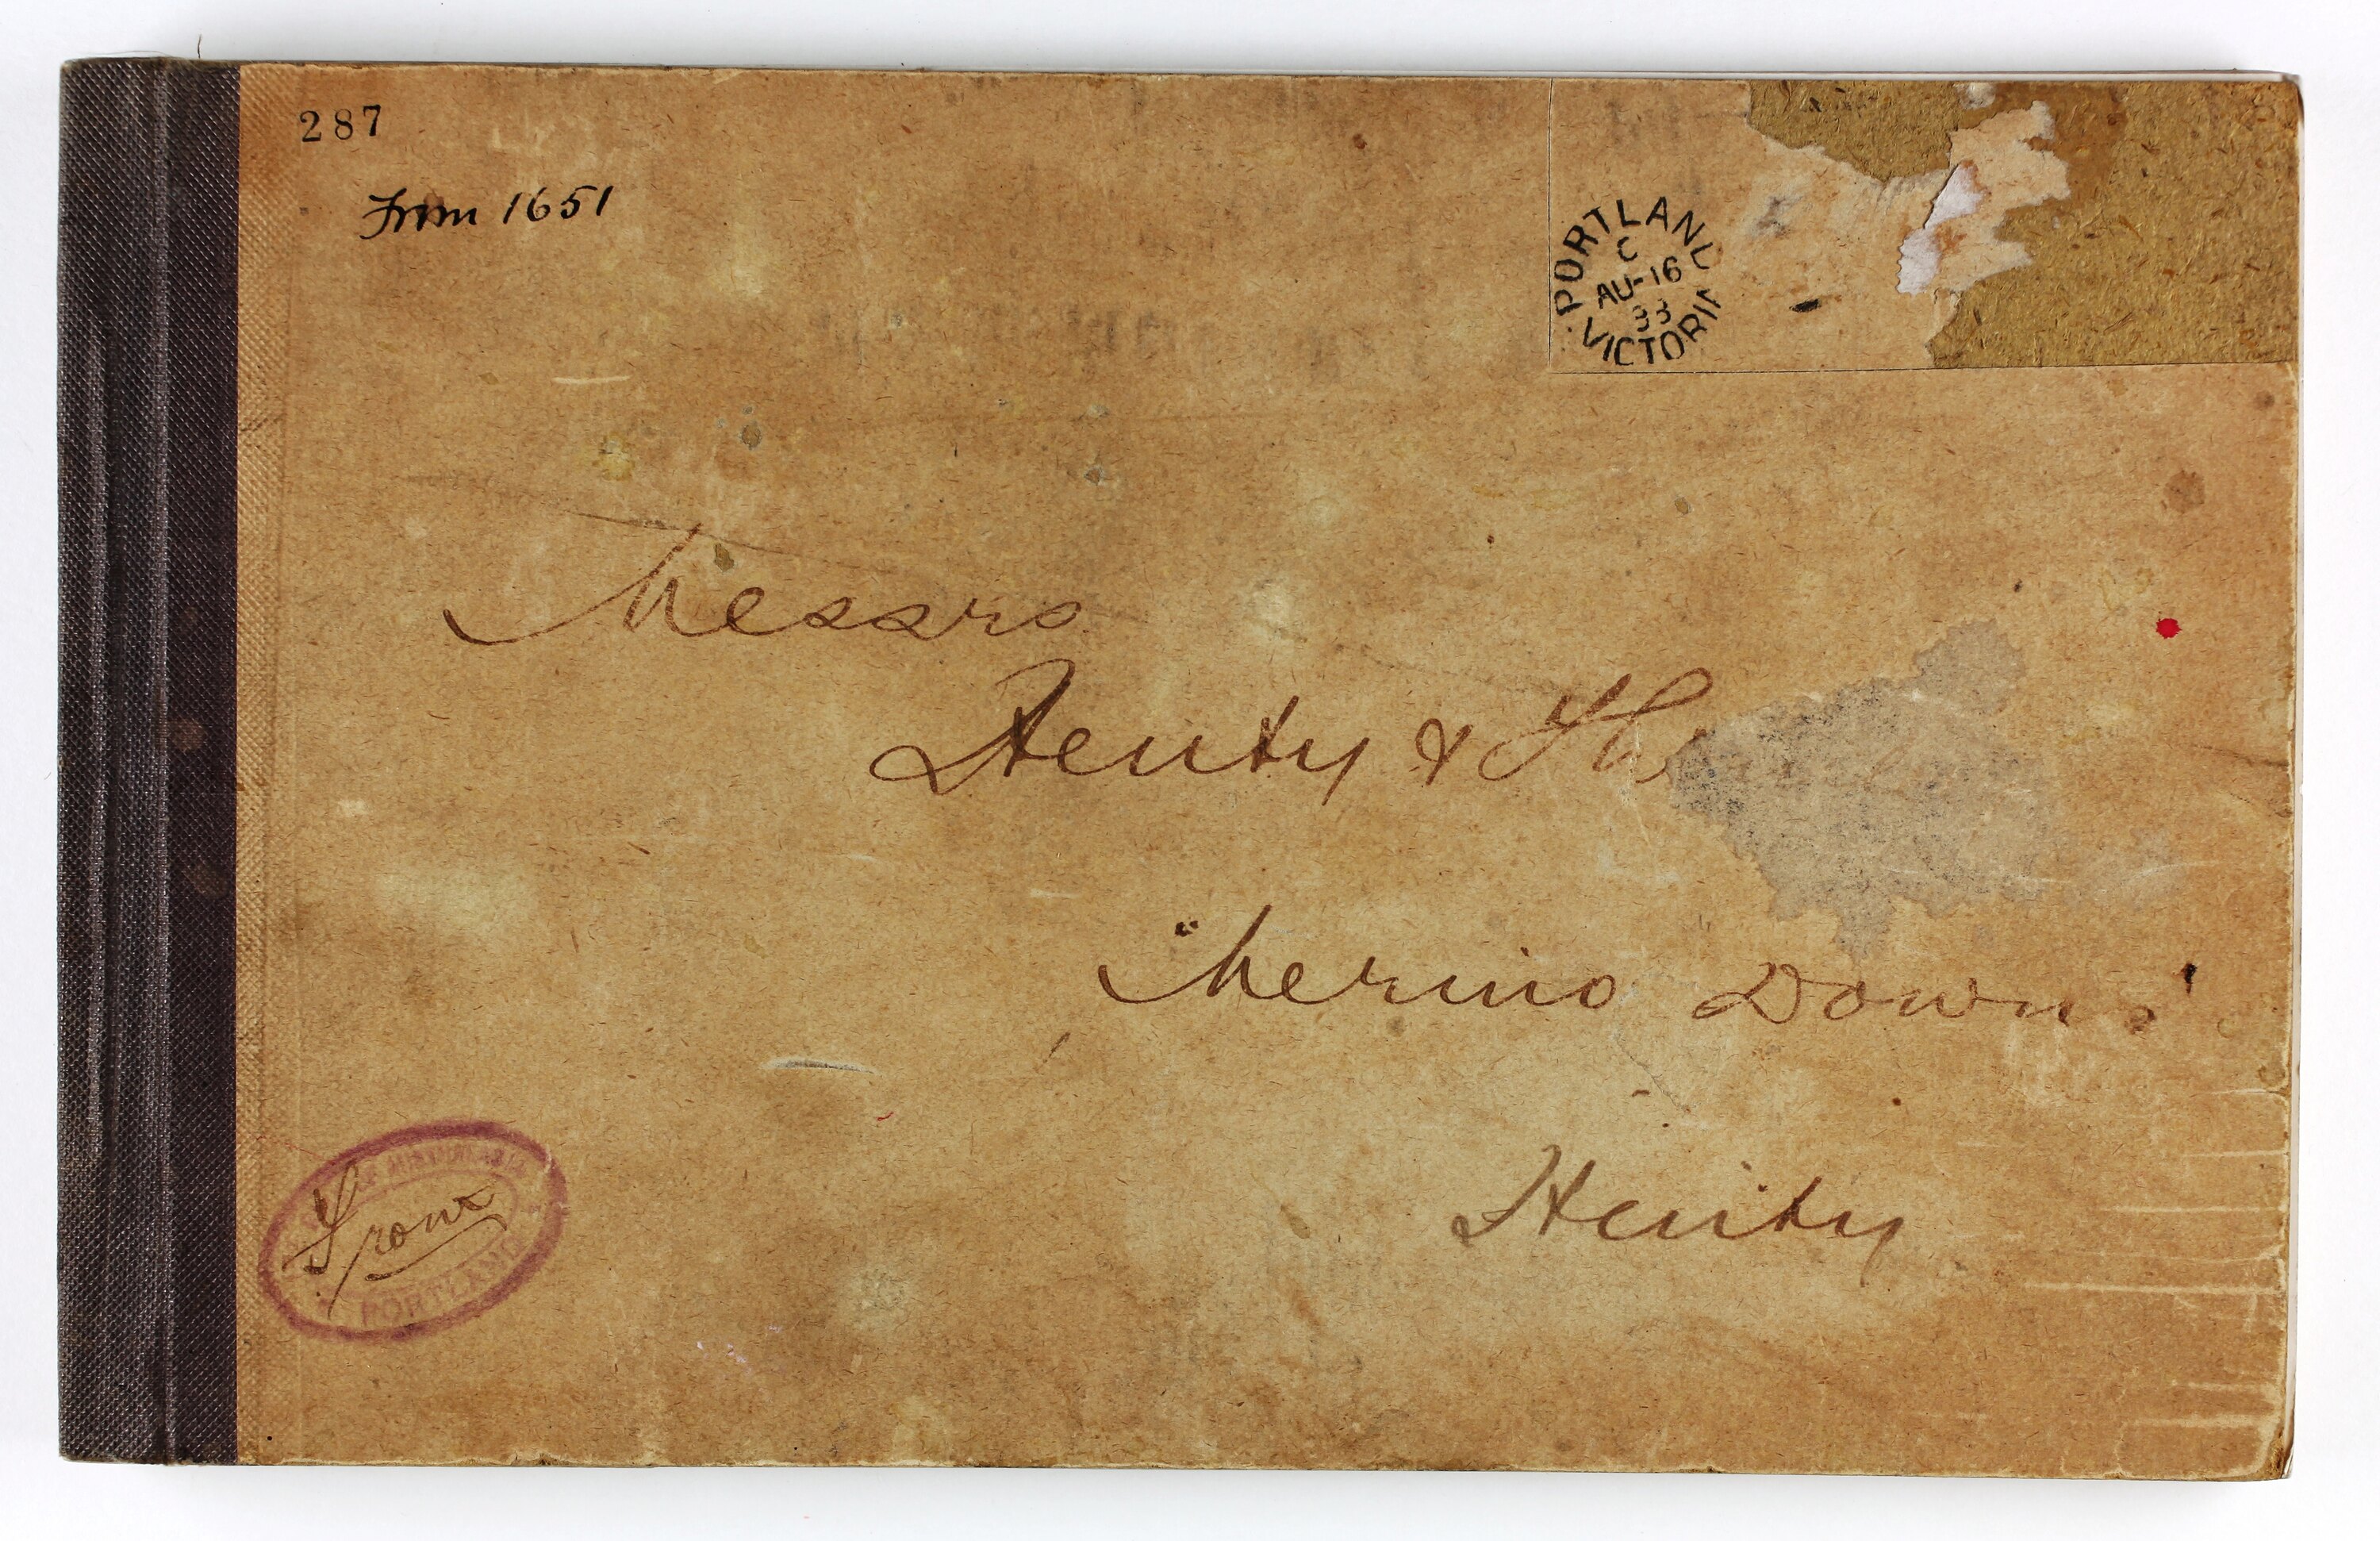 287
From 1651
PORTLAND
C
AU-16
33
VICTORIA
Messrs
Henty &
"Merino Downs"
Henty
From
PORTLAND